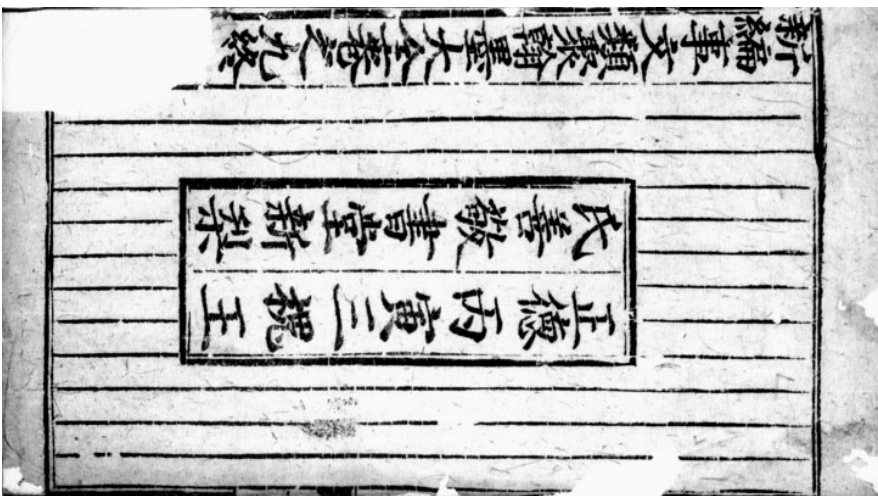 正德丙寅三槐王
氏善敬書堂新栞
新編事文類聚翰墨大全卷之九終